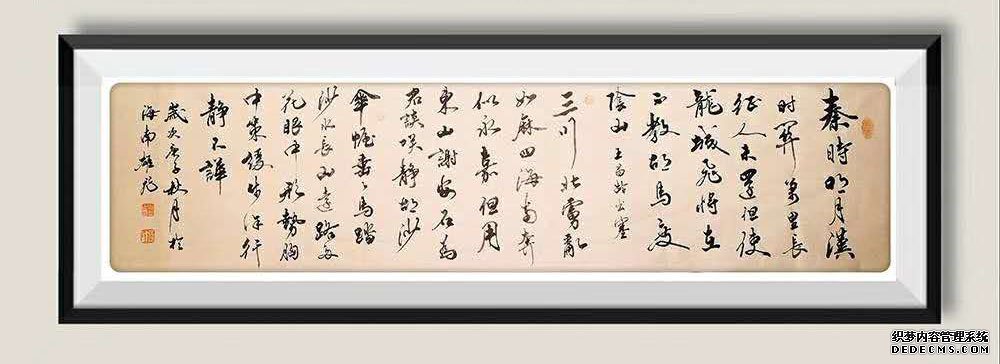 秦時明月漢
時関萬里長
征人未還但使
龍城飛將在
不教胡馬度
陰山 王昌龄出塞
三川北虜亂
如麻四海南奔
似永嘉但用
東山謝安石為
君談笑静胡沙
傘幄垂垂馬踏
沙水長山遠路多
花眼中形勢胸
中策緩步徐行
静不譁
歲次庚子秋月於
海南
织梦内容管理系统
DEDECMS.COM